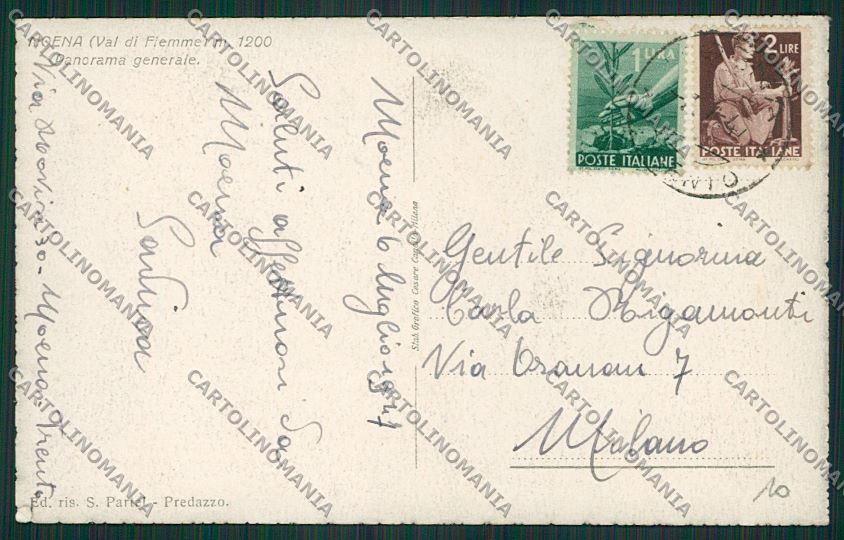 MOENA (Val di Fiemme) m. 1200
Panorama generale.
Moena 6 luglio 1947
Saluti affettuosi da
Moena
Via 30 - Moena - Trento
Ed. ris. S. Partel - Predazzo.
Stab. Grafico Cesare Milano
1 LIRA
POSTE ITALIANE
2 LIRE
POSTE ITALIANE
Gentile Signorina
Carla Rigamonti
Via 7
Milano
10
CARTOLINOMANIA